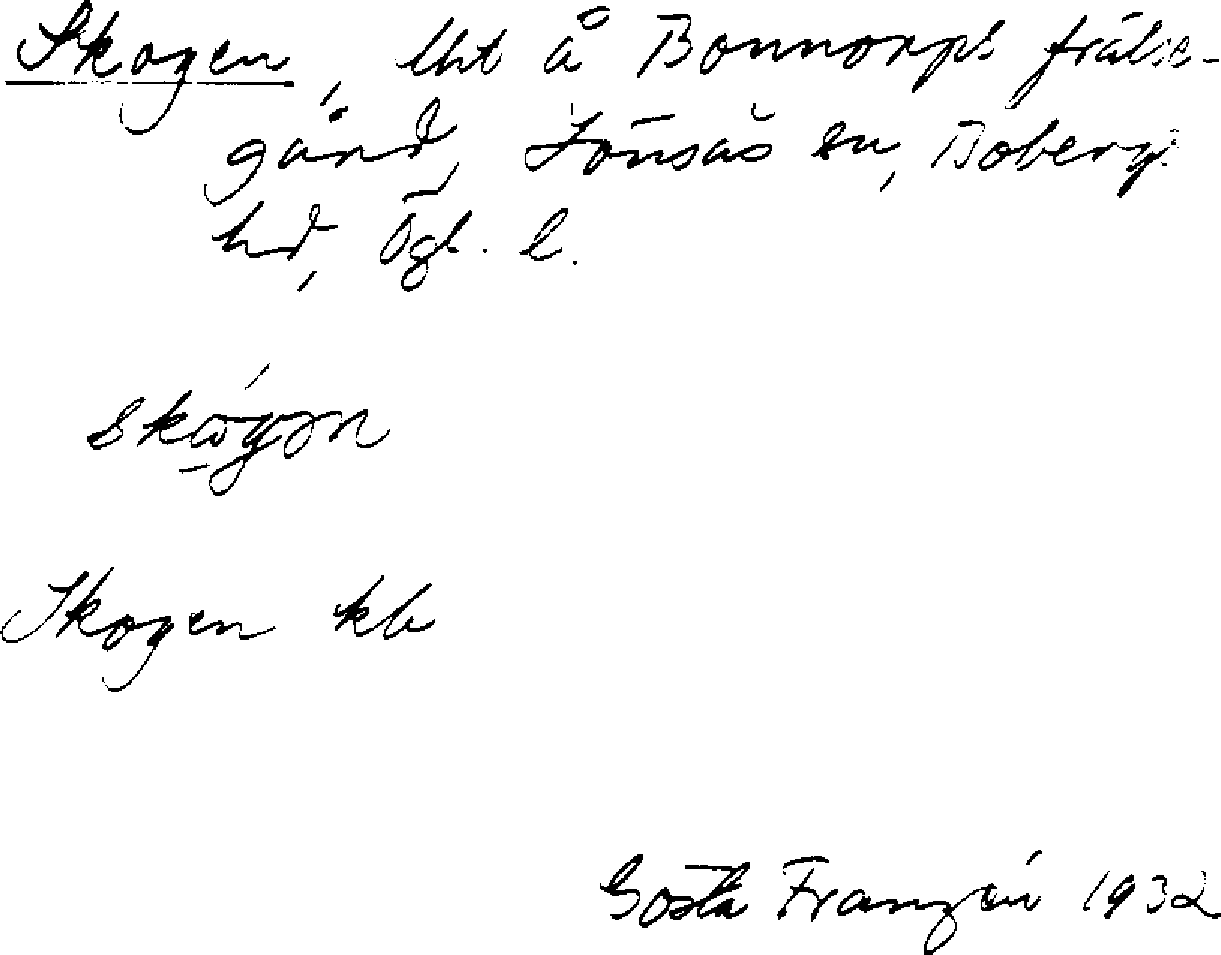 Skogen, lht å Bonnorps frälse-
gård, Lönsås sn, Bobergs
hd, Ögl. l.
skωgən
Skogen kb
Gösta Franzén 1932